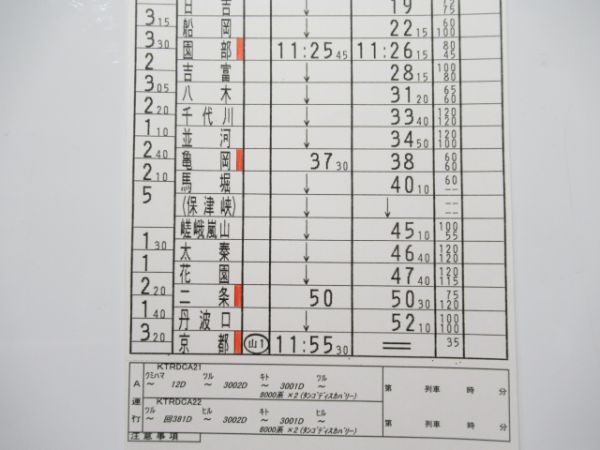 日 吉 ↓ 19 75
3 15
船 岡 ↓ 22 15 60 100
3 30
園 部 11:25 45 11:26 15 80 45
2
吉 富 ↓ 28 15 100 80
3 05
八 木 ↓ 31 20 65 60
2 20
千 代 川 ↓ 33 40 120 120
1 10
並 河 ↓ 34 50 120 100
2 40
亀 岡 37 30 38 60 60
2 10
馬 堀 ↓ 40 10 60 --
5
(保 津 峡) ↓ ↓ -- --
嵯峨嵐山 ↓ 45 10 100 55
1 30
太 秦 ↓ 46 40 120 120
1
花 園 ↓ 47 40 120 115
2 20
二 条 50 50 30 75 120
1 40
丹 波 口 ↓ 52 10 100 100
3 20
京 都 山1 11:55 30 = 35
A 運 行
KTRDCA21
クミハマ ツル キト ツル
～ 12D ～ 3002D ～ 3001D ～
8000系 ×2 (タンゴディスカバリー)
KTRDCA22
ツル ヒル キト ヒル
～ 回381D ～ 3002D ～ 3001D ～
8000系 ×2 (タンゴディスカバリー)
第 列車 時 分
第 列車 時 分
注意事項